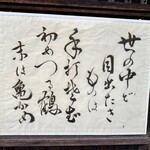 世の中で
目出たき
ものは
手打そば
初めつる鶴
末は亀かめ